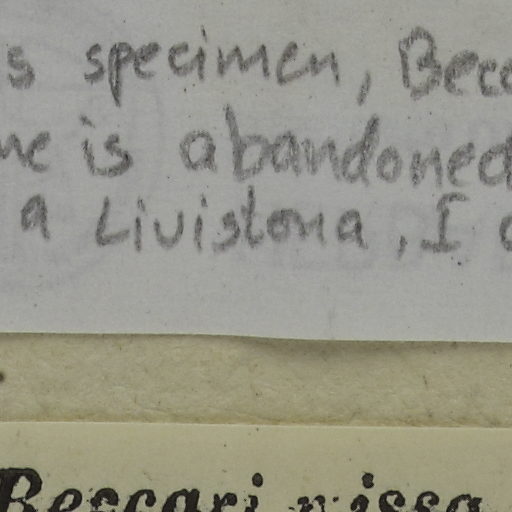 s specimen, Becc
me is abandoned
a Livistona, I
Beccari